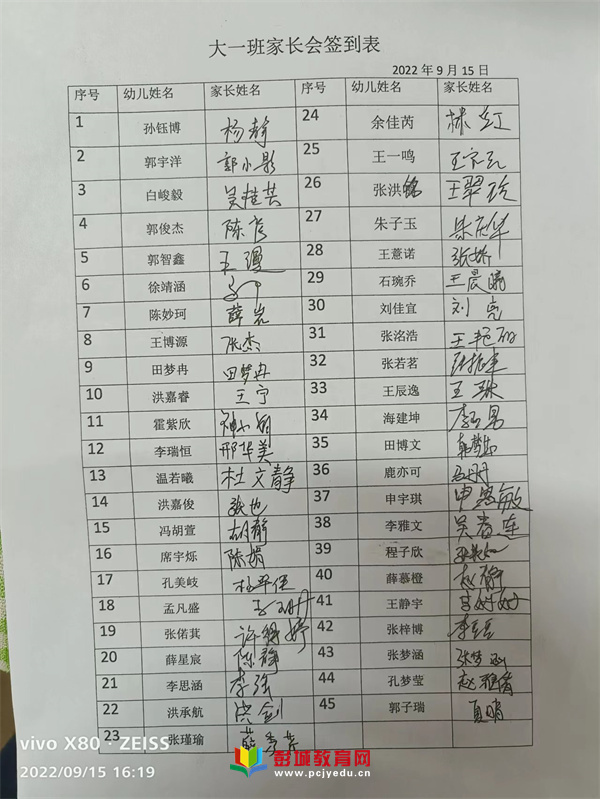 大一班家长会签到表
2022 年 9 月 15 日
序号 幼儿姓名 家长姓名 序号 幼儿姓名 家长姓名
1 孙钰博 杨静 24 余佳芮 林红
2 郭宇洋 郭小影 25 王一鸣
3 白峻毅 吴桂芸 26 张洪铭 王翠玲
4 郭俊杰 陈彦 27 朱子玉
5 郭智鑫 王漫 28 王薏诺 张娇
6 徐靖涵 29 石琬乔 王晨曦
7 陈妙珂 薛岩 30 刘佳宜 刘亮
8 王博源 张杰 31 张洺浩
9 田梦冉 田梦冉 32 张若茗
10 洪嘉睿 王宁 33 王辰逸 王珠
11 霍紫欣 34 海建坤 李男
12 李瑞恒 邢华美 35 田博文
13 温若曦 杜文静 36 鹿亦可
14 洪嘉俊 张也 37 申宇琪 申思敏
15 冯胡萱 胡静 38 李雅文 吴春连
16 席宇烁 陈娟 39 程子欣
17 孔美岐 40 薛慕橙 赵静
18 孟凡盛 41 王静宇
19 张偌萁 42 张梓博
20 薛星宸 陈静 43 张梦涵 张梦涵
21 李思涵 李强 44 孔梦莹
22 洪承航 洪剑 45 郭子瑞 夏晴
23 张瑾瑜
vivo X80 · ZEISS
2022/09/15 16:19
彭城教育网
www.pcjyedu.cn